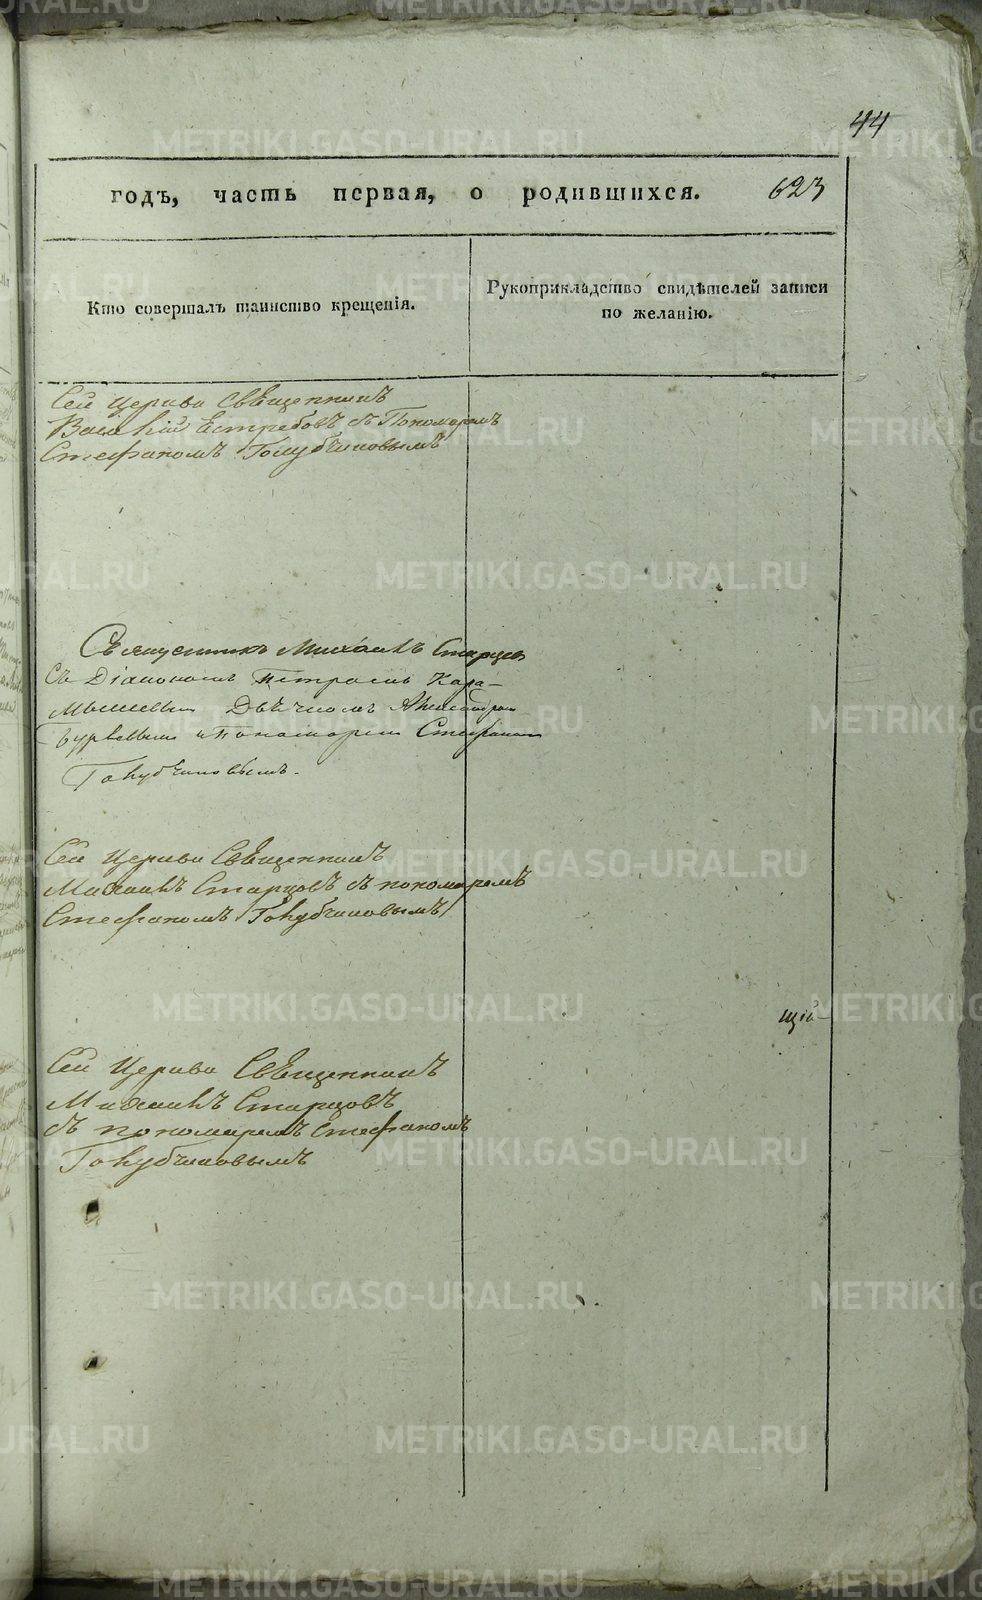 44
годъ, часть первая, о родившихся. 623
Кто совершалъ таинство крещенія.
Рукоприкладство свидѣтелей записи
по желанію.
Сей Церкви Священникъ
Василій Ястребовъ съ Пономаремъ
Стефаномъ Голубчиковымъ
Священникъ Михаилъ Старцовъ
Съ Діакономъ Петромъ Кара-
мышевым Дьячкомъ Александром
и Пономарем Стефаном
Голубчиковымъ.
Сей Церкви Священникъ
Михаилъ Старцовъ съ пономаремъ
Стефаномъ Голубчиковымъ
щій
Сей Церкви Священникъ
Михаилъ Старцовъ
съ пономаремъ Стефаномъ
Голубчиковымъ
METRIKI.GASO-URAL.RU